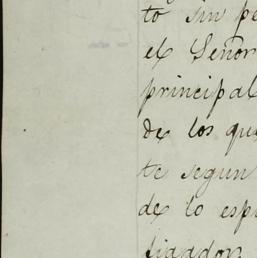 to sin pe
el Señor
principal
de los que
te segun
de lo esp
fiador